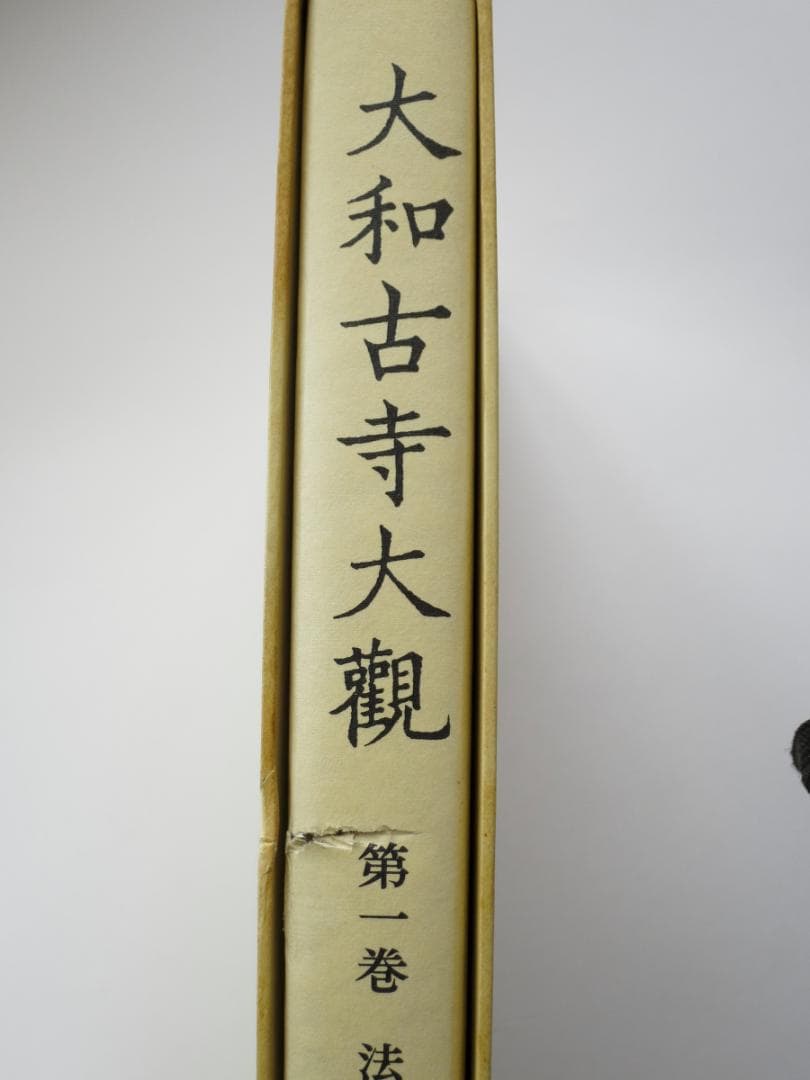 大和古寺大觀
第一巻 法